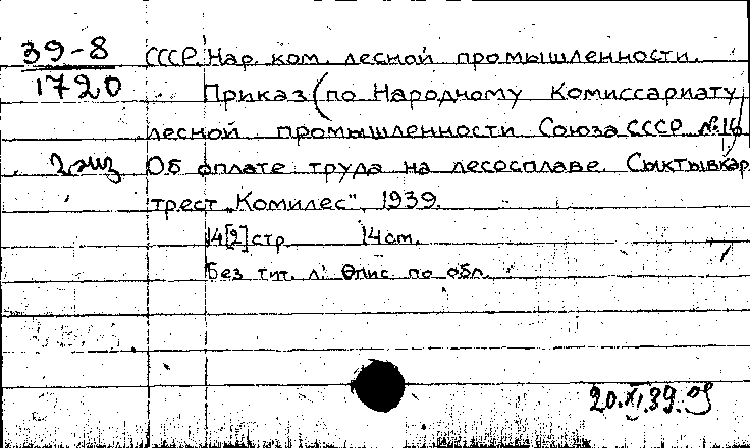 39-8
1720
2 экз
СССР. Нар. ком. лесной промышленности.
Приказ (по Народному Комиссариату
лесной промышленности Союза СССР №16)
Об оплате труда на лесосплаве. Сыктывкар
трест „Комилес", 1939.
14[2] стр 14 см.
Без тит. л. Опис. по обл.
20.XI.39.